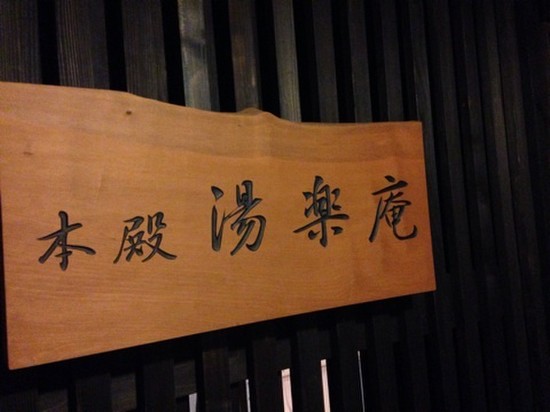 本殿 湯楽庵